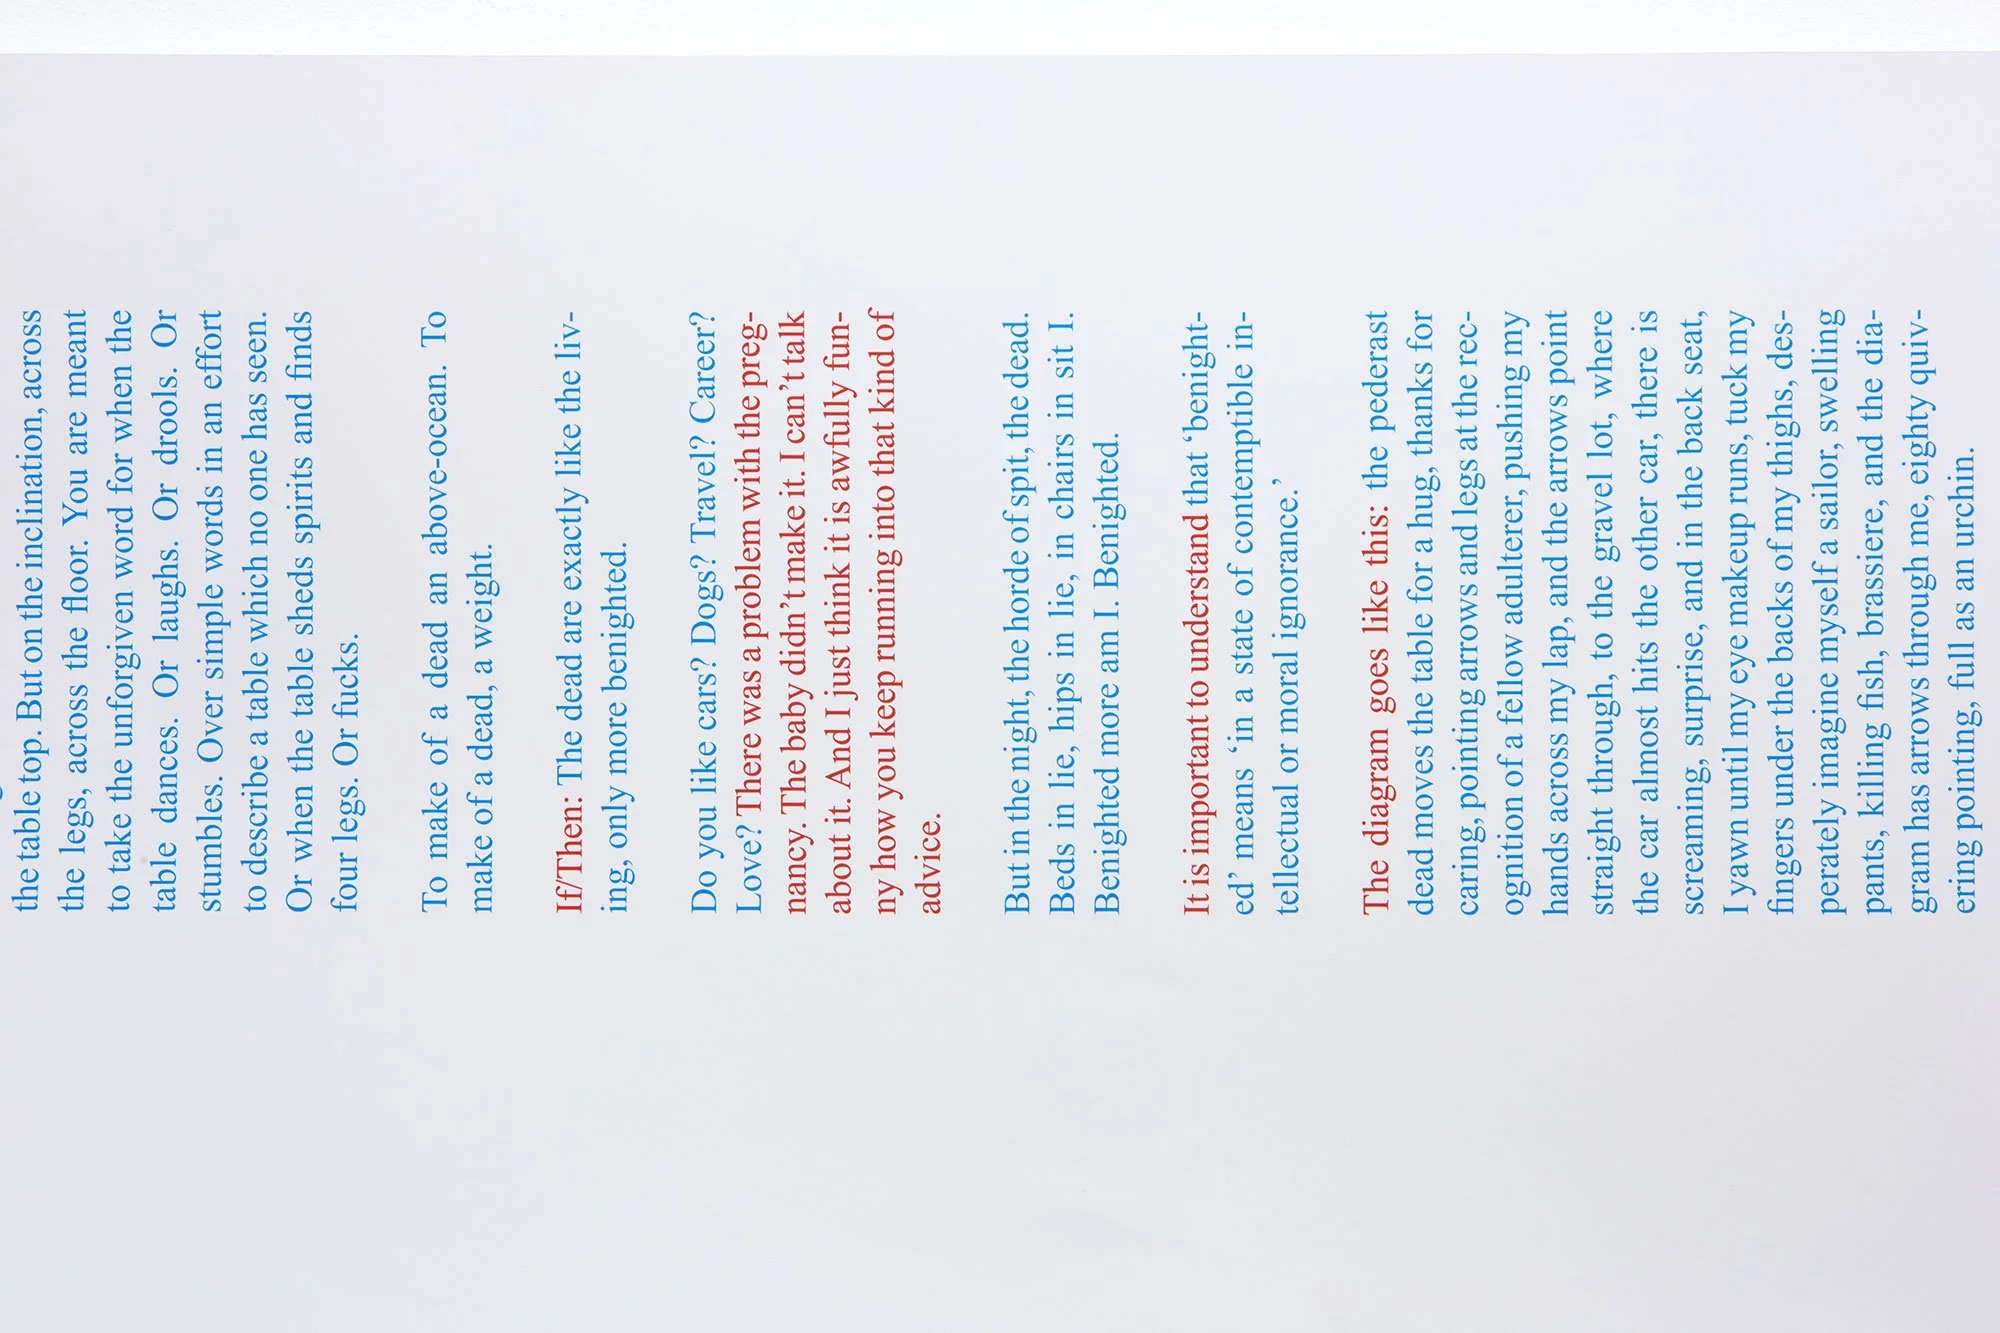 the table top. But on the inclination, across
the legs, across the floor. You are meant
to take the unforgiven word for when the
table dances. Or laughs. Or drools. Or
stumbles. Over simple words in an effort
to describe a table which no one has seen.
Or when the table sheds spirits and finds
four legs. Or fucks.
To make of a dead an above-ocean. To
make of a dead, a weight.
If/Then: The dead are exactly like the liv-
ing, only more benighted.
Do you like cars? Dogs? Travel? Career?
Love? There was a problem with the preg-
nancy. The baby didn't make it. I can't talk
about it. And I just think it is awfully fun-
ny how you keep running into that kind of
advice.
But in the night, the horde of spit, the dead.
Beds in lie, hips in lie, in chairs in sit I.
Benighted more am I. Benighted.
It is important to understand that ‘benight-
ed’ means ‘in a state of contemptible in-
tellectual or moral ignorance.’
The diagram goes like this: the pederast
dead moves the table for a hug, thanks for
caring, pointing arrows and legs at the rec-
ognition of a fellow adulterer, pushing my
hands across my lap, and the arrows point
straight through, to the gravel lot, where
the car almost hits the other car, there is
screaming, surprise, and in the back seat,
I yawn until my eye makeup runs, tuck my
fingers under the backs of my thighs, des-
perately imagine myself a sailor, swelling
pants, killing fish, brassiere, and the dia-
gram has arrows through me, eighty quiv-
ering pointing, full as an urchin.